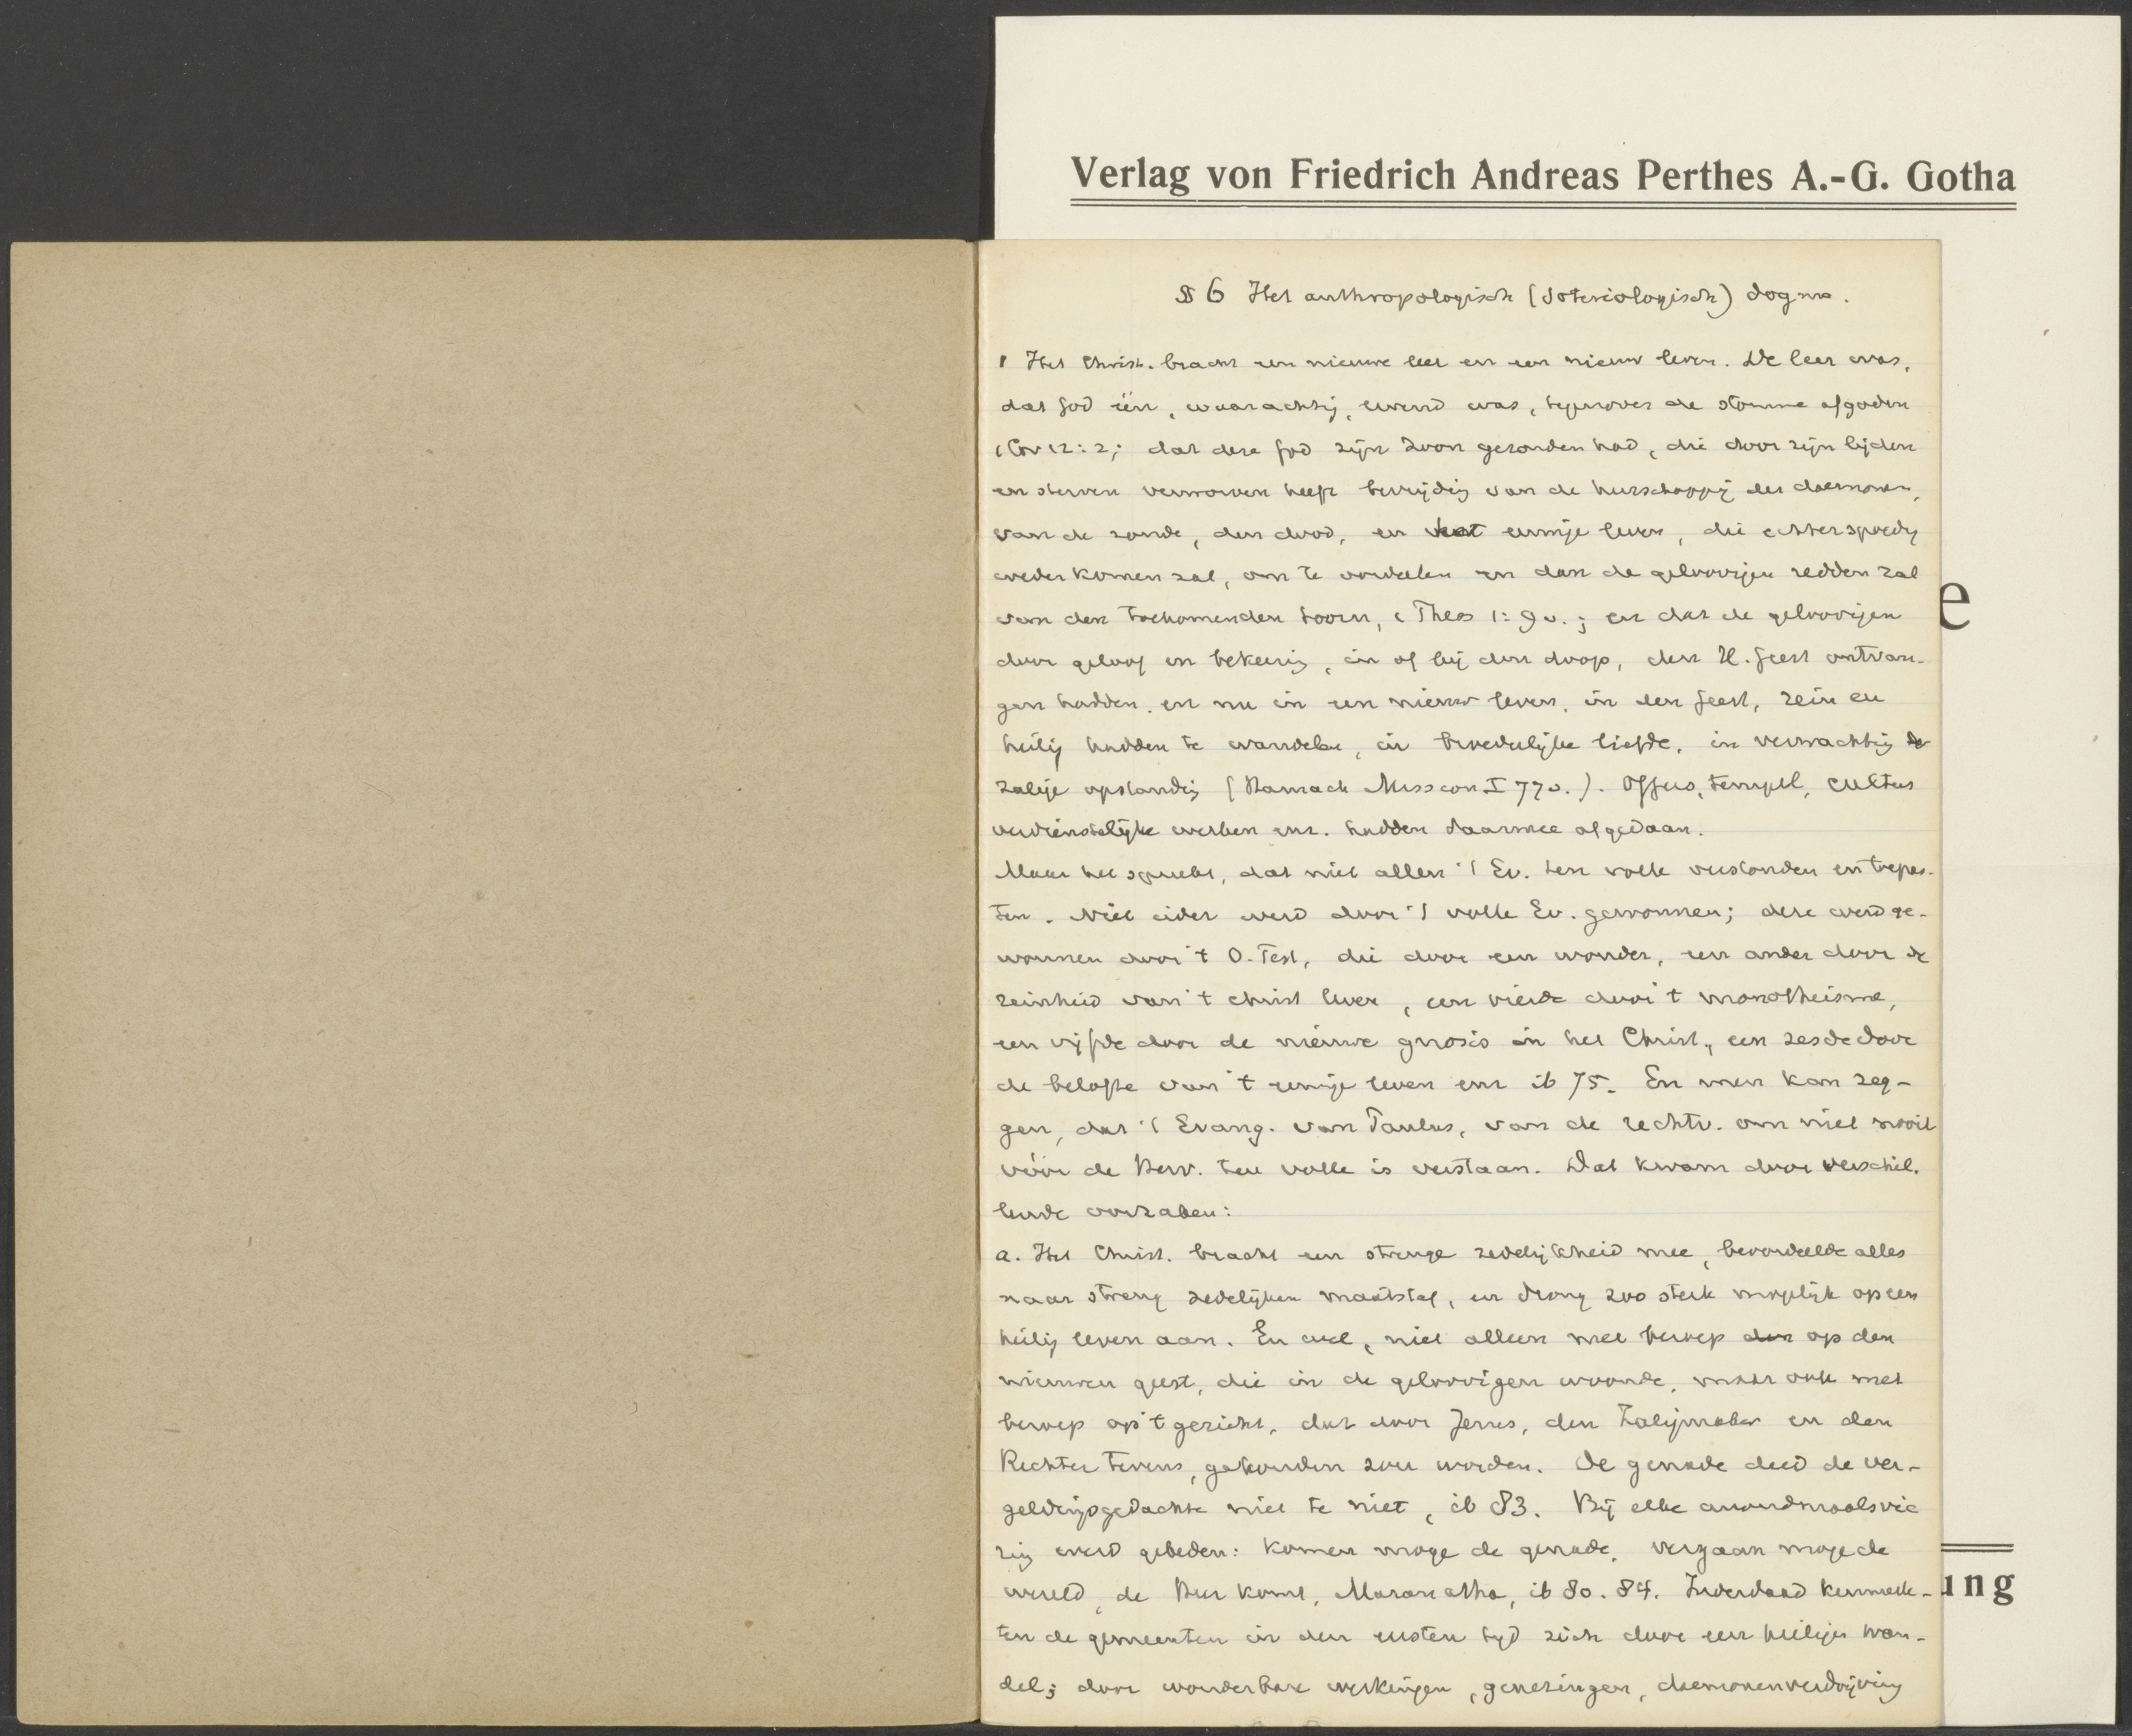 Verlag von Friedrich Andreas Perthes A.-G. Gotha
§ 6 Het anthropologisch (soteriologisch) dogma.
1 Het Christ. bracht een nieuwe leer en een nieuw leven. De leer was,
dat God één, waarachtig, levend was, tegenover de stomme afgoden
1 Cor 12:2; dat deze God zijn Zoon gezonden had, die door zijn lijden
en sterven verworven heeft bevrijding van de heerschappij der daemonen,
van de zonde, den dood, en het eeuwige leven, die echter spoedig
wederkomen zal, om te oordeelen en dan de geloovigen redden zal
van den toekomenden toorn, 1 Thess 1:9v.; en dat de geloovigen
door geloof en bekeering, in of bij den doop, den H. Geest ontvan-
gen hadden, en nu in een nieuw leven, in den Geest, rein en
heilig hadden te wandelen, in broederlijke liefde, in verwachting der
zalige opstanding (Harnack Mission I 77v.). Offers, tempel, cultus
verdienstelijke werken enz. hadden daarmee afgedaan.
Maar het spreekt, dat niet allen 't Ev. ten volle verstonden en toepas-
ten. Niet ieder werd door 't volle Ev. gewonnen; deze werd ge-
wonnen door 't O. Test, die door een wonder, een ander door de
reinheid van 't christ leven, een vierde door 't monotheisme,
een vijfde door de nieuwe gnosis in het Christ., een zesde door
de belofte van 't eeuwige leven enz ib 75. En men kan zeg-
gen, dat 't Evang. van Paulus, van de rechtv. om niet nooit
vóór de Herv. ten volle is verstaan. Dat kwam door verschil-
lende oorzaken:
a. Het Christ. bracht een strenge zedelijkheid mee, beoordeelde alles
naar streng zedelijken maatstaf, en drong zoo sterk mogelijk op een
heilig leven aan. En wel, niet alleen met beroep den op den
nieuwen geest, die in de geloovigen woonde, maar ook met
beroep op 't gericht, dat door Jezus, den Zaligmaker en den
Rechter tevens, gehouden zou worden. De genade deed de ver-
geldingsgedachte niet te niet, ib 83. Bij elke avondmaalsvie
ring werd gebeden: komen moge de genade, vergaan moge de
wereld, de Heer komt, Maranatha, ib 80. 84. Inderdaad kenmerk-
ten de gemeenten in den eersten tijd zich door een heiligen wan-
del; door wonderbare werkingen, genezingen, daemonenverdrijving
e
ung